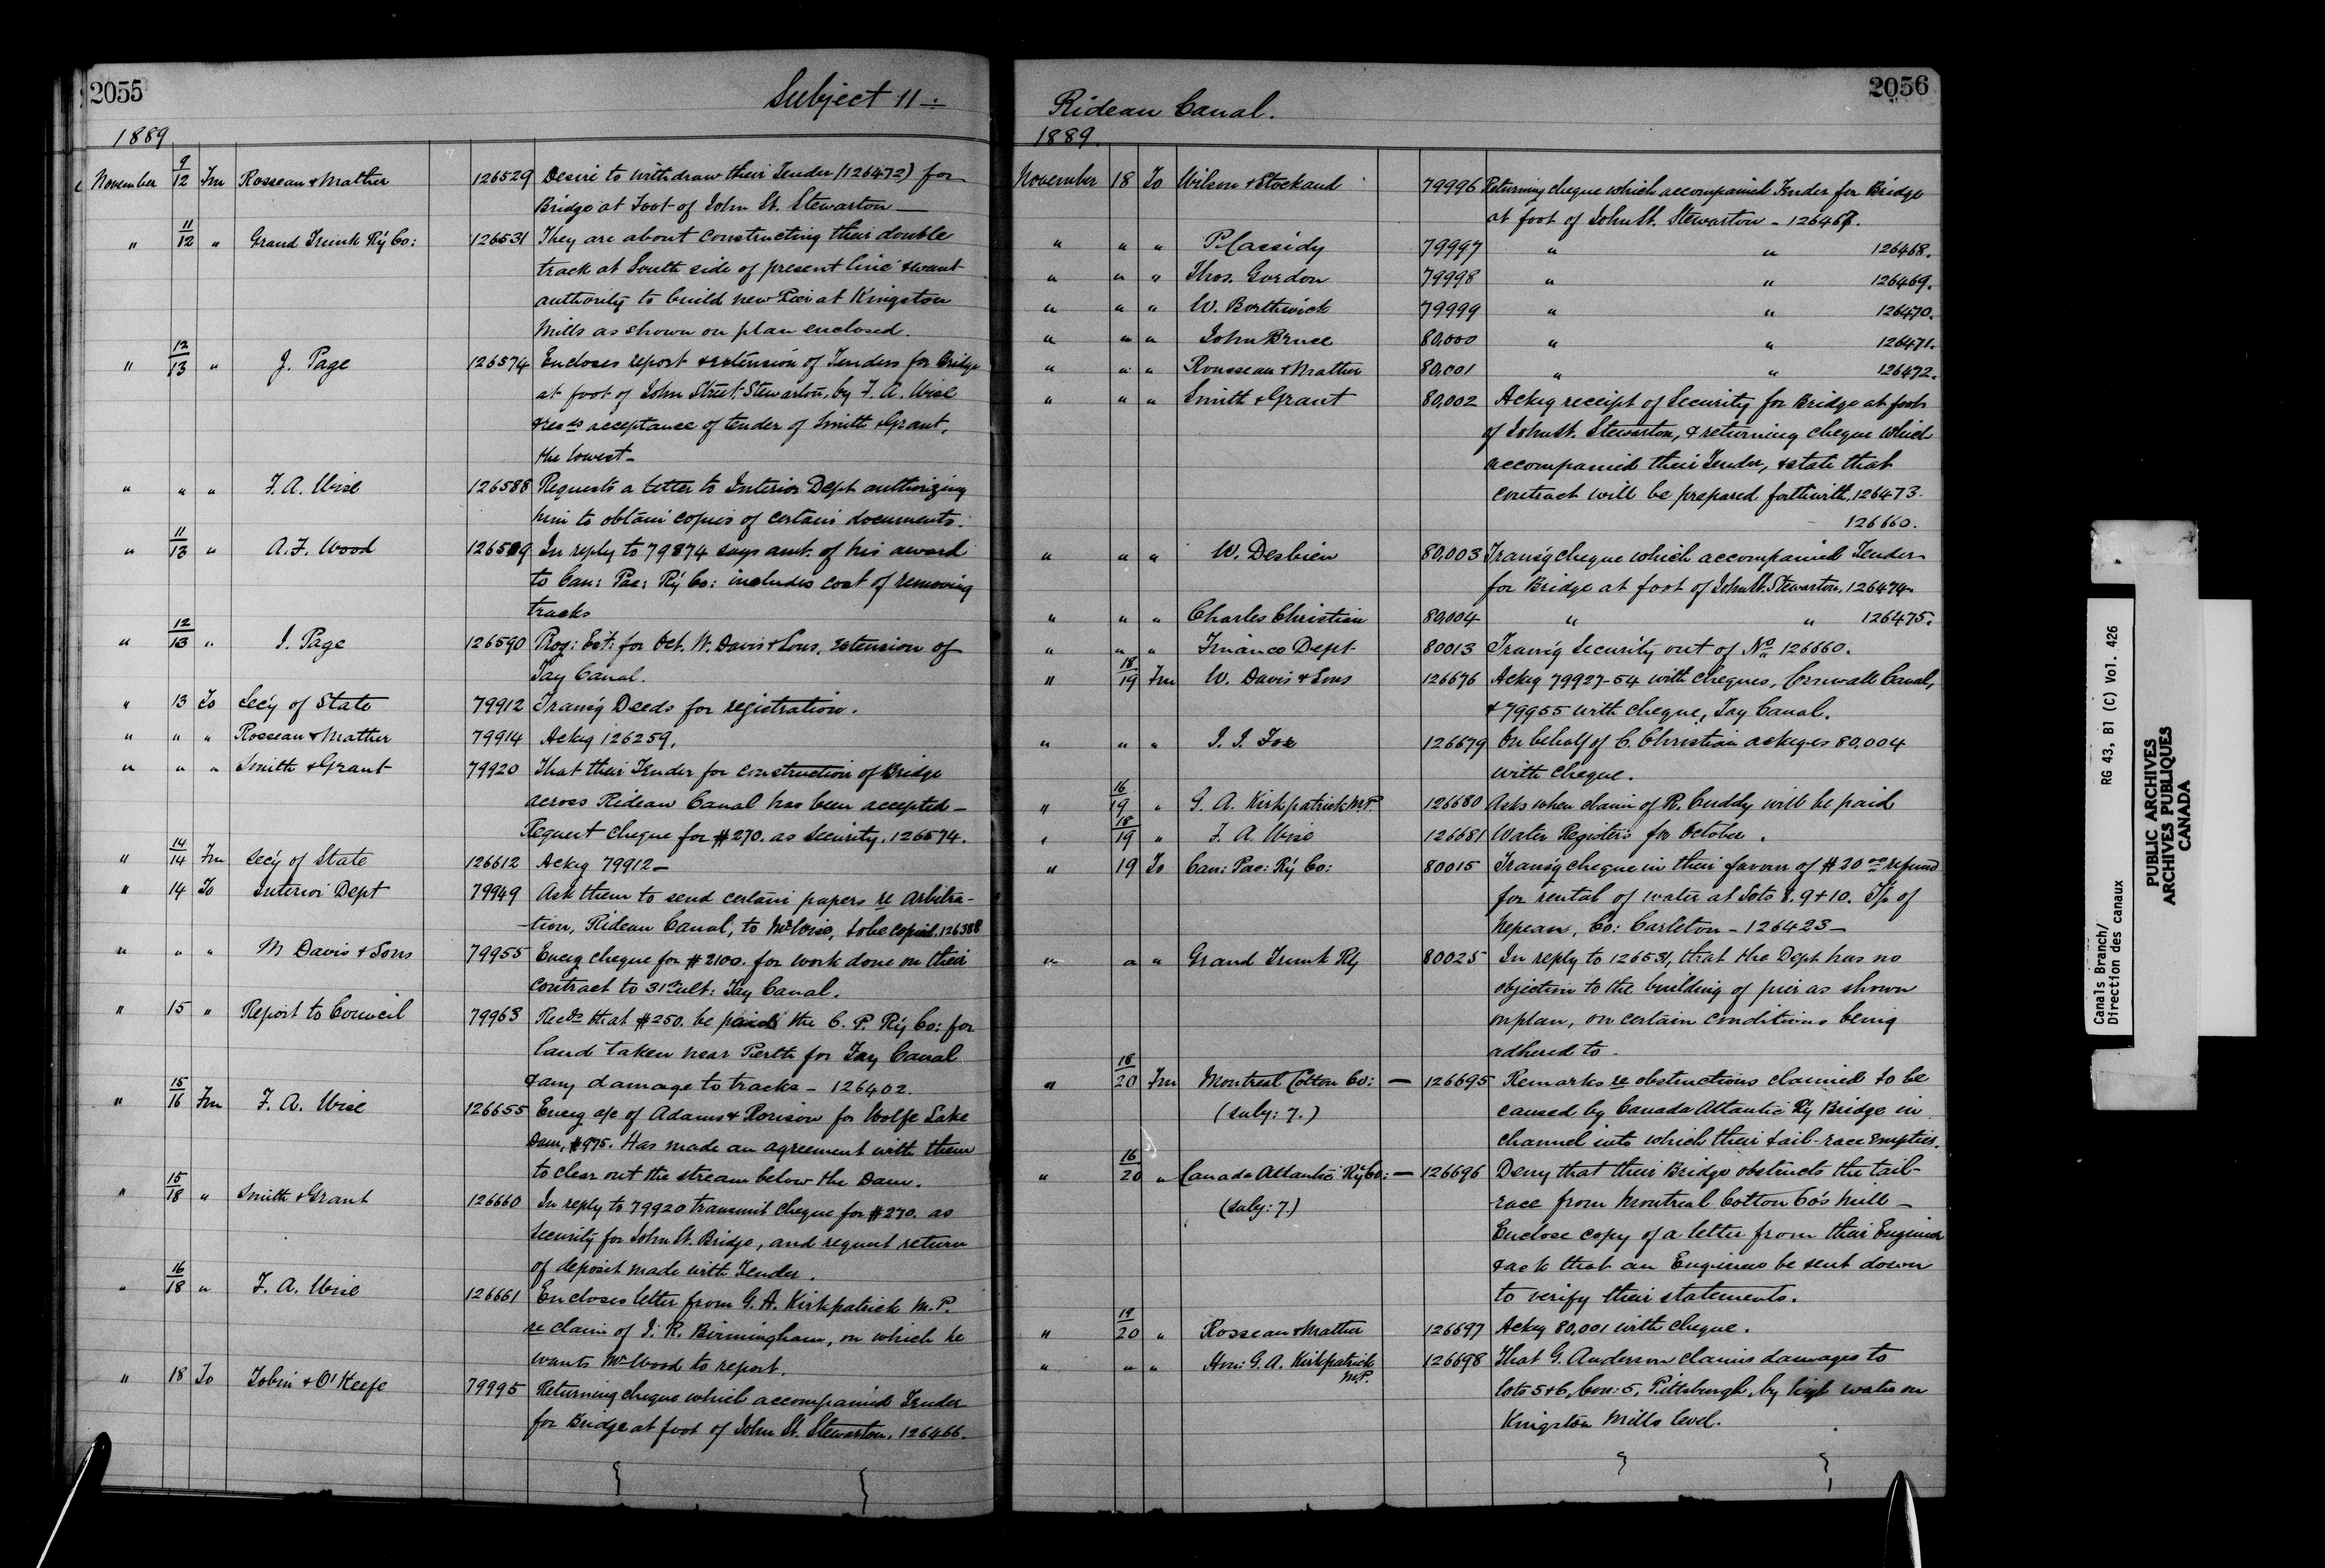 2055
Subject 11 :
1889
November 9/12 Fm Rosseau & Mather 126529 Desire to withdraw their Tender (126472) for
Bridge at Foot of John St. Stewarton —
" 11/12 " Grand Trunk Ry Co: 126531 They are about constructing their double
track at South side of present line & want
authority to build new Pier at Kingston
Mills as shown on plan enclosed.
" 12/13 " J. Page 126574 Encloses report & extension of Tenders for Bridge
at foot of John Street Stewarton, by F. A. Wise
& recds acceptance of tender of Smith & Grant,
the lowest —
" " " F. A. Wise 126588 Requests a letter to Interior Dept authorizing
him to obtain copies of certain documents.
" 11/13 " A. F. Wood 126589 In reply to 79874 says amt. of his award
to Can: Pac: Ry Co: includes cost of removing
tracks
" 12/13 " J. Page 126590 Prog: Est: for Oct. W. Davis & Sons, extension of
Tay Canal.
" 13 To Sec'y of State 79912 Transg Deeds for registration.
" " " Rosseau & Mather 79914 Ackg 126259.
" " " Smith & Grant 79920 That their Tender for construction of Bridge
across Rideau Canal has been accepted —
Request cheque for $270. as Security. 126574.
" 14/14 Fm Sec'y of State 126612 Ackg 79912 —
" 14 To Interior Dept 79949 Ask them to send certain papers re Arbitra-
-tion, Rideau Canal, to Mr Wise, to be copied. 126388
" " " M Davis & Sons 79955 Encg cheque for $2100. for work done on their
contract to 31st ult: Tay Canal.
" 15 " Report to Council 79963 Recds that $250. be paid the C. P. Ry Co: for
land taken near Perth for Tay Canal
& any damage to tracks — 126402.
" 15/16 Fm F. A. Wise 126655 Encg a/c of Adams & Rorison for Wolfe Lake
Dam, $975. Has made an agreement with them
to clear out the stream below the Dam.
" 15/18 " Smith & Grant 126660 In reply to 79920 transmit cheque for $270. as
Security for John St. Bridge, and request return
of deposit made with Tender.
" 16/18 " F. A. Wise 126661 Encloses letter from G. A. Kirkpatrick M.P.
re claim of J. R. Birmingham, on which he
wants Mr Wood to report.
" 18 To Tobin & O'Keefe 79995 Returning cheque which accompanied Tender
for Bridge at foot of John St. Stewarton. 126466.
2056
Rideau Canal.
1889.
November 18 To Wilson & Stockand 79996 Returning cheque which accompanied Tender for Bridge
at foot of John St. Stewarton — 126467.
" " " P. Cassidy 79997 " " 126468.
" " " Thos. Gordon 79998 " " 126469.
" " " W. Borthwick 79999 " " 126470.
" " " John Bruce 80,000 " " 126471.
" " " Rousseau & Mather 80,001 " " 126472.
" " " Smith & Grant 80,002 Ackg receipt of Security for Bridge at foot
of John St. Stewarton, & returning cheque which
accompanied their Tender, & state that
contract will be prepared forthwith. 126473.
126660.
" " " W. Desbien 80,003 Transg cheque which accompanied Tender
for Bridge at foot of John St. Stewarton, 126474.
" " " Charles Christian 80,004 " " 126475.
" " " Finance Dept 80013 Transg Security out of No 126660.
" 18/19 Fm W. Davis & Sons 126676 Ackg 79927-54 with cheques, Cornwall Canal,
& 79955 with cheque, Tay Canal.
" " " J. J. Fox 126679 On behalf of C. Christian ackges 80,004
with cheque.
" 16/19 " G. A. Kirkpatrick M.P. 126680 Asks when claim of R. Cuddy will be paid
" 18/19 " F. A. Wise 126681 Water Registers for October.
" 19 To Can: Pac: Ry Co: 80015 Transg cheque in their favour of $20 00 refund
for rental of water at Lots 8. 9 & 10. Tp of
Nepean, Co: Carleton — 126423 —
" " " Grand Trunk Ry 80025 In reply to 126531, that the Dept has no
objection to the building of pier as shown
on plan, on certain conditions being
adhered to.
" 18/20 Fm Montreal Cotton Co: — 126695 Remarks re obstructions claimed to be
(subj: 7.) caused by Canada Atlantic Ry Bridge in
channel into which their tail-race empties.
" 16/20 " Canada Atlantic Ry Co: — 126696 Deny that their Bridge obstructs the tail-
(subj: 7) race from Montreal Cotton Co's Mill —
Enclose copy of a letter from their Engineer
& ask that an Engineer be sent down
to verify their statements.
" 19/20 " Rosseau & Mather 126697 Ackg 80,001 with cheque.
" " " Hon: G. A. Kirkpatrick M.P. 126698 That G. Anderson claims damages to
lots 5 & 6, Con: 5, Pittsburgh, by high water on
Kingston Mills level.
Canals Branch/
Direction des canaux
RG 43, B1 (C) Vol. 426
PUBLIC ARCHIVES
ARCHIVES PUBLIQUES
CANADA